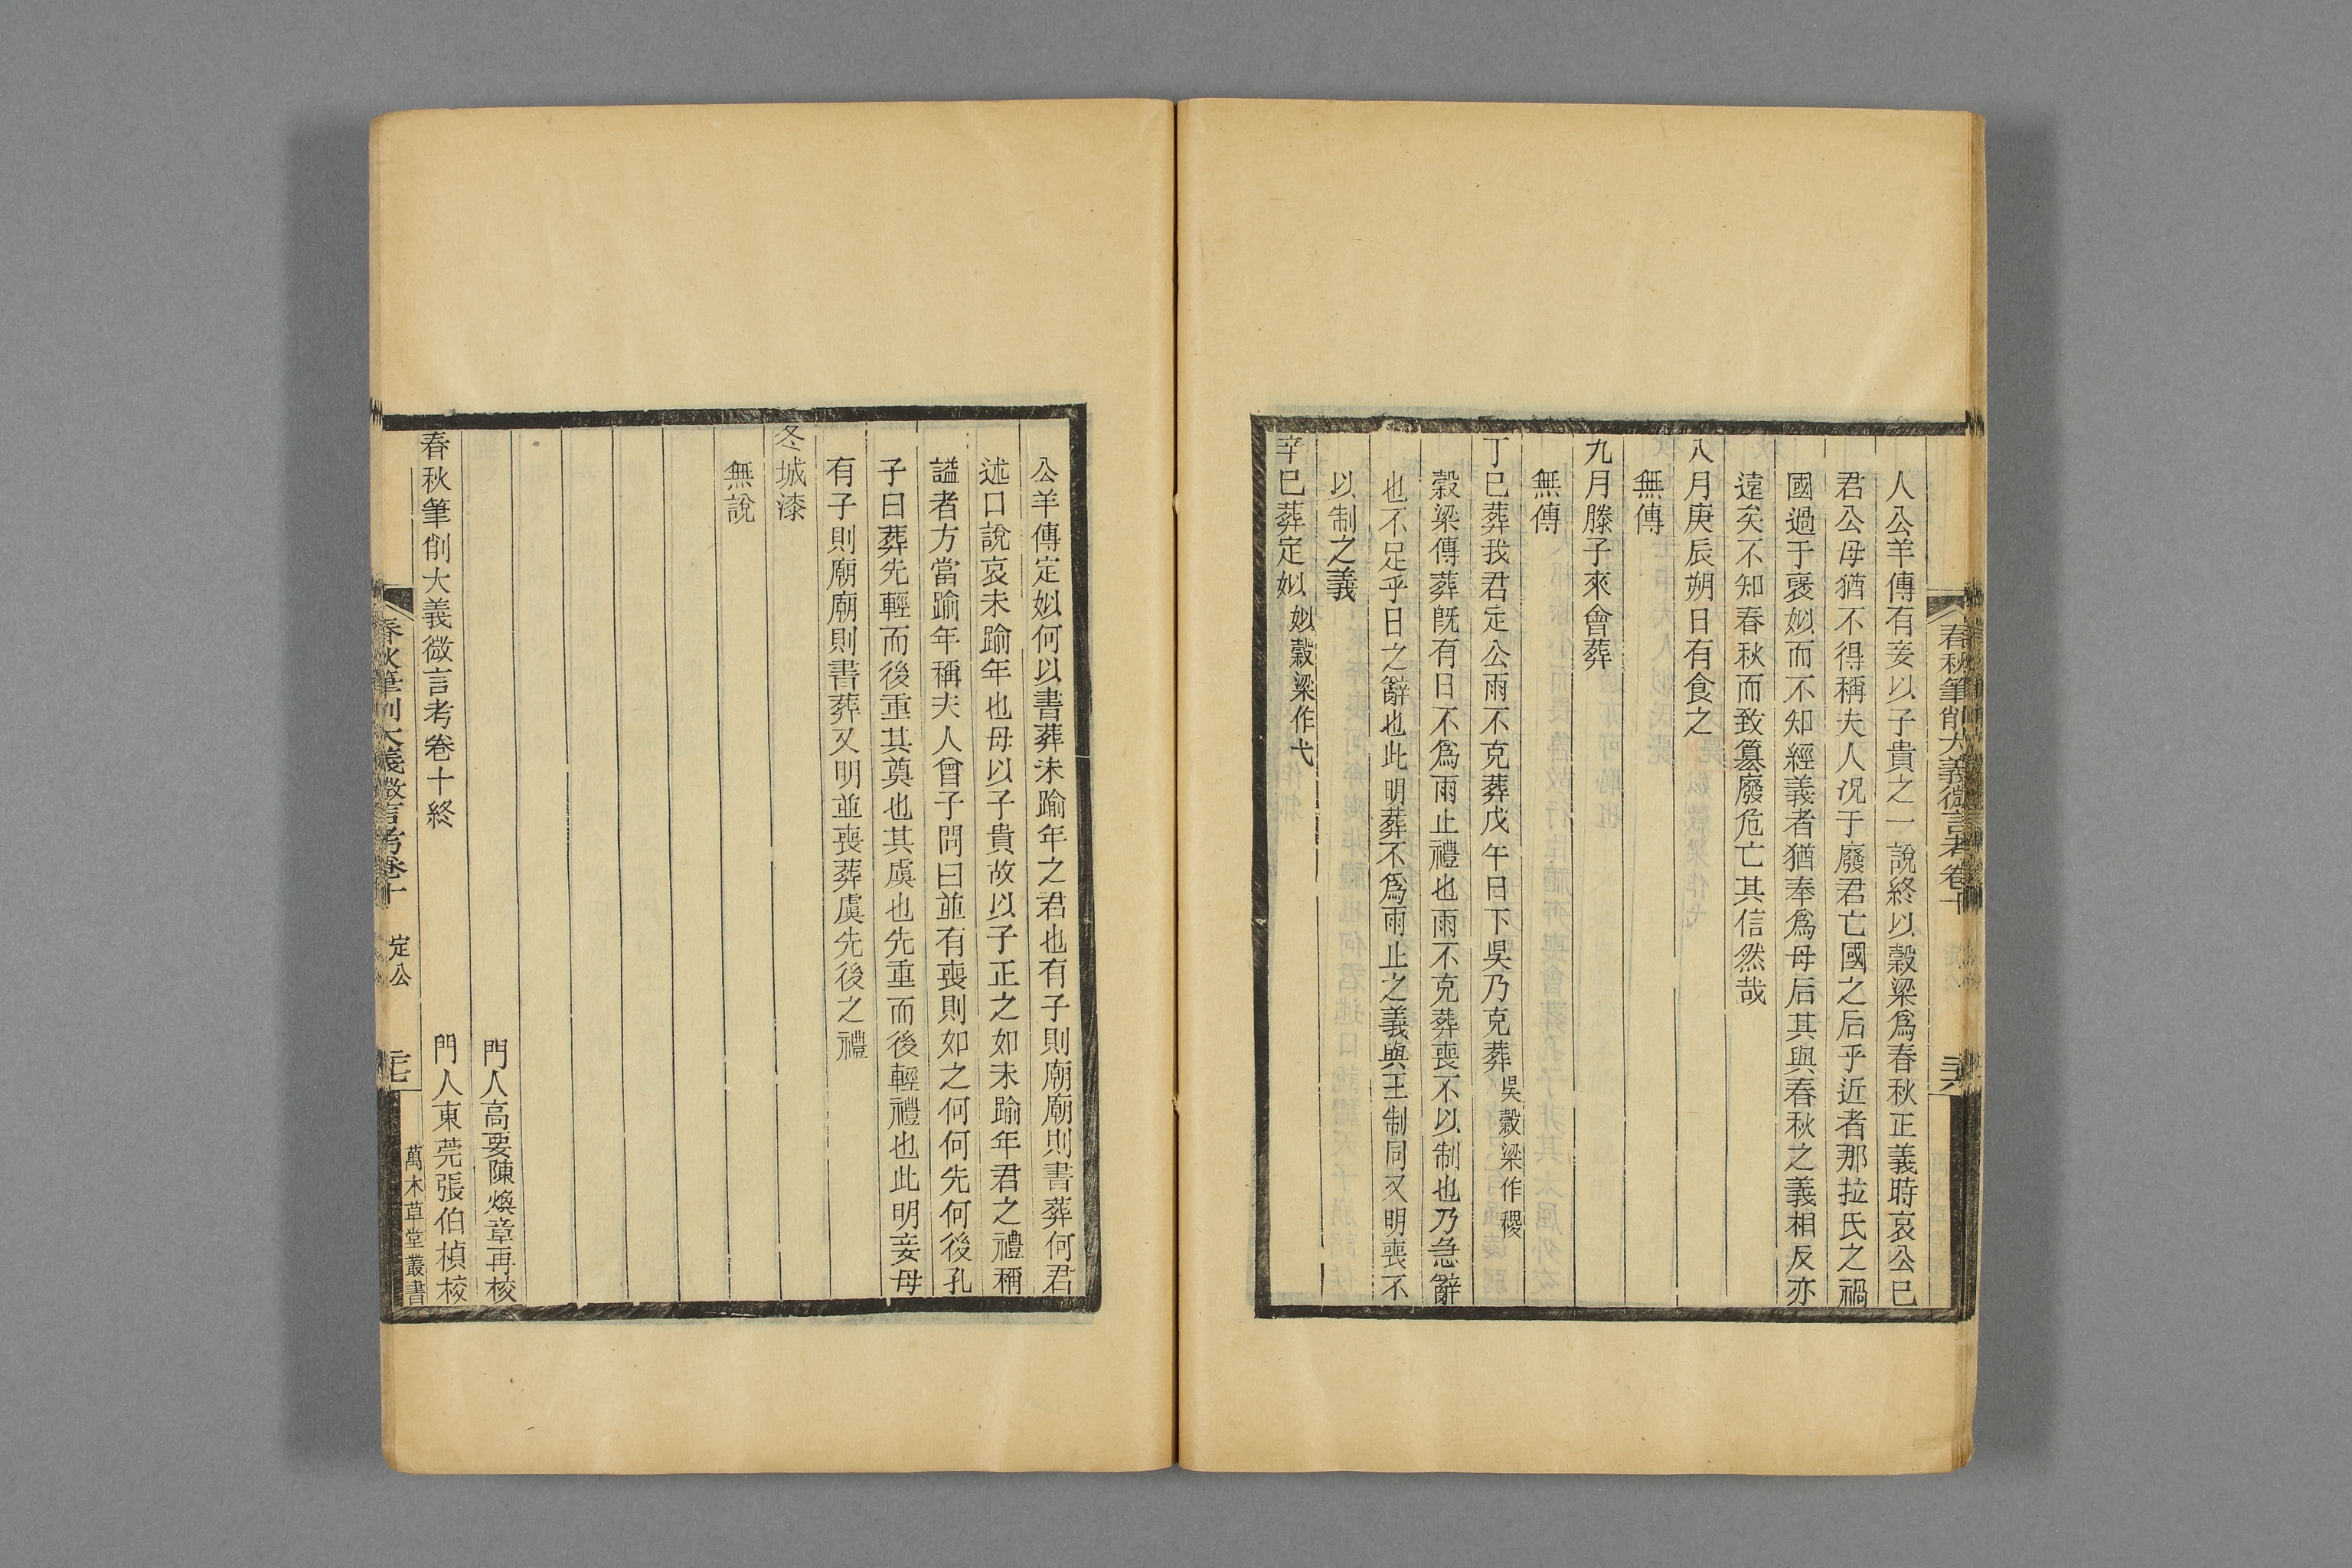 春秋筆削大義微言考卷十
人公羊傳有妾以子貴之一說終以穀梁爲春秋正義時哀公已
君公母猶不得稱夫人况于廢君亡國之后乎近者那拉氏之禍
國過于褒姒而不知經義者猶奉爲母后其與春秋之義相反亦
遠矣不知春秋而致篡廢危亡其信然哉
八月庚辰朔日有食之
無傳
九月滕子來會葬
無傳
丁巳葬我君定公雨不克葬戊午日下昃乃克葬昃穀梁作稷
穀梁傳葬旣有日不爲雨止禮也雨不克葬喪不以制也乃急辭
也不足乎日之辭也此明葬不爲雨止之義與王制同又明喪不
以制之義
辛巳葬定姒姒穀梁作弋
公羊傳定姒何以書葬未踰年之君也有子則廟廟則書葬何君
述口說哀未踰年也母以子貴故以子正之如未踰年君之禮稱
謚者方當踰年稱夫人曾子問曰並有喪則如之何何先何後孔
子曰葬先輕而後重其奠也其虞也先重而後輕禮也此明妾母
有子則廟廟則書葬又明並喪葬虞先後之禮
冬城漆
無說
門人高要陳煥章再校
春秋筆削大義微言考卷十終
門人東莞張伯楨校
春秋筆削大義微言考卷十
定公
萬木草堂叢書